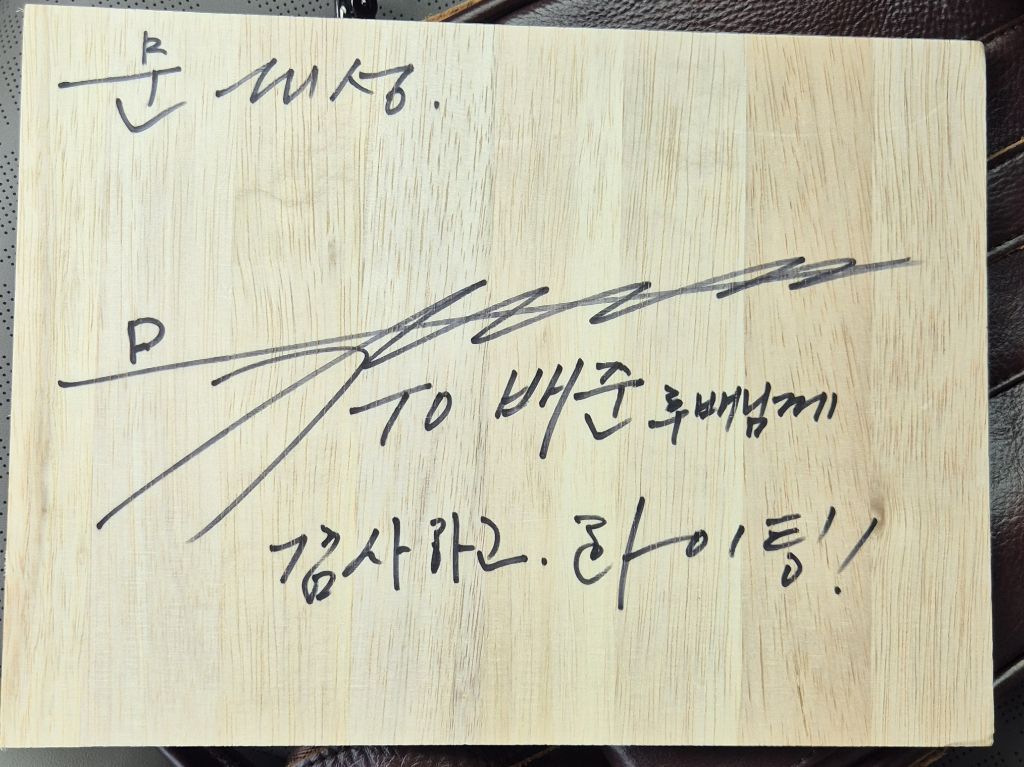 문 대성.
TO 배준 후배님께
감사하고. 화이팅!